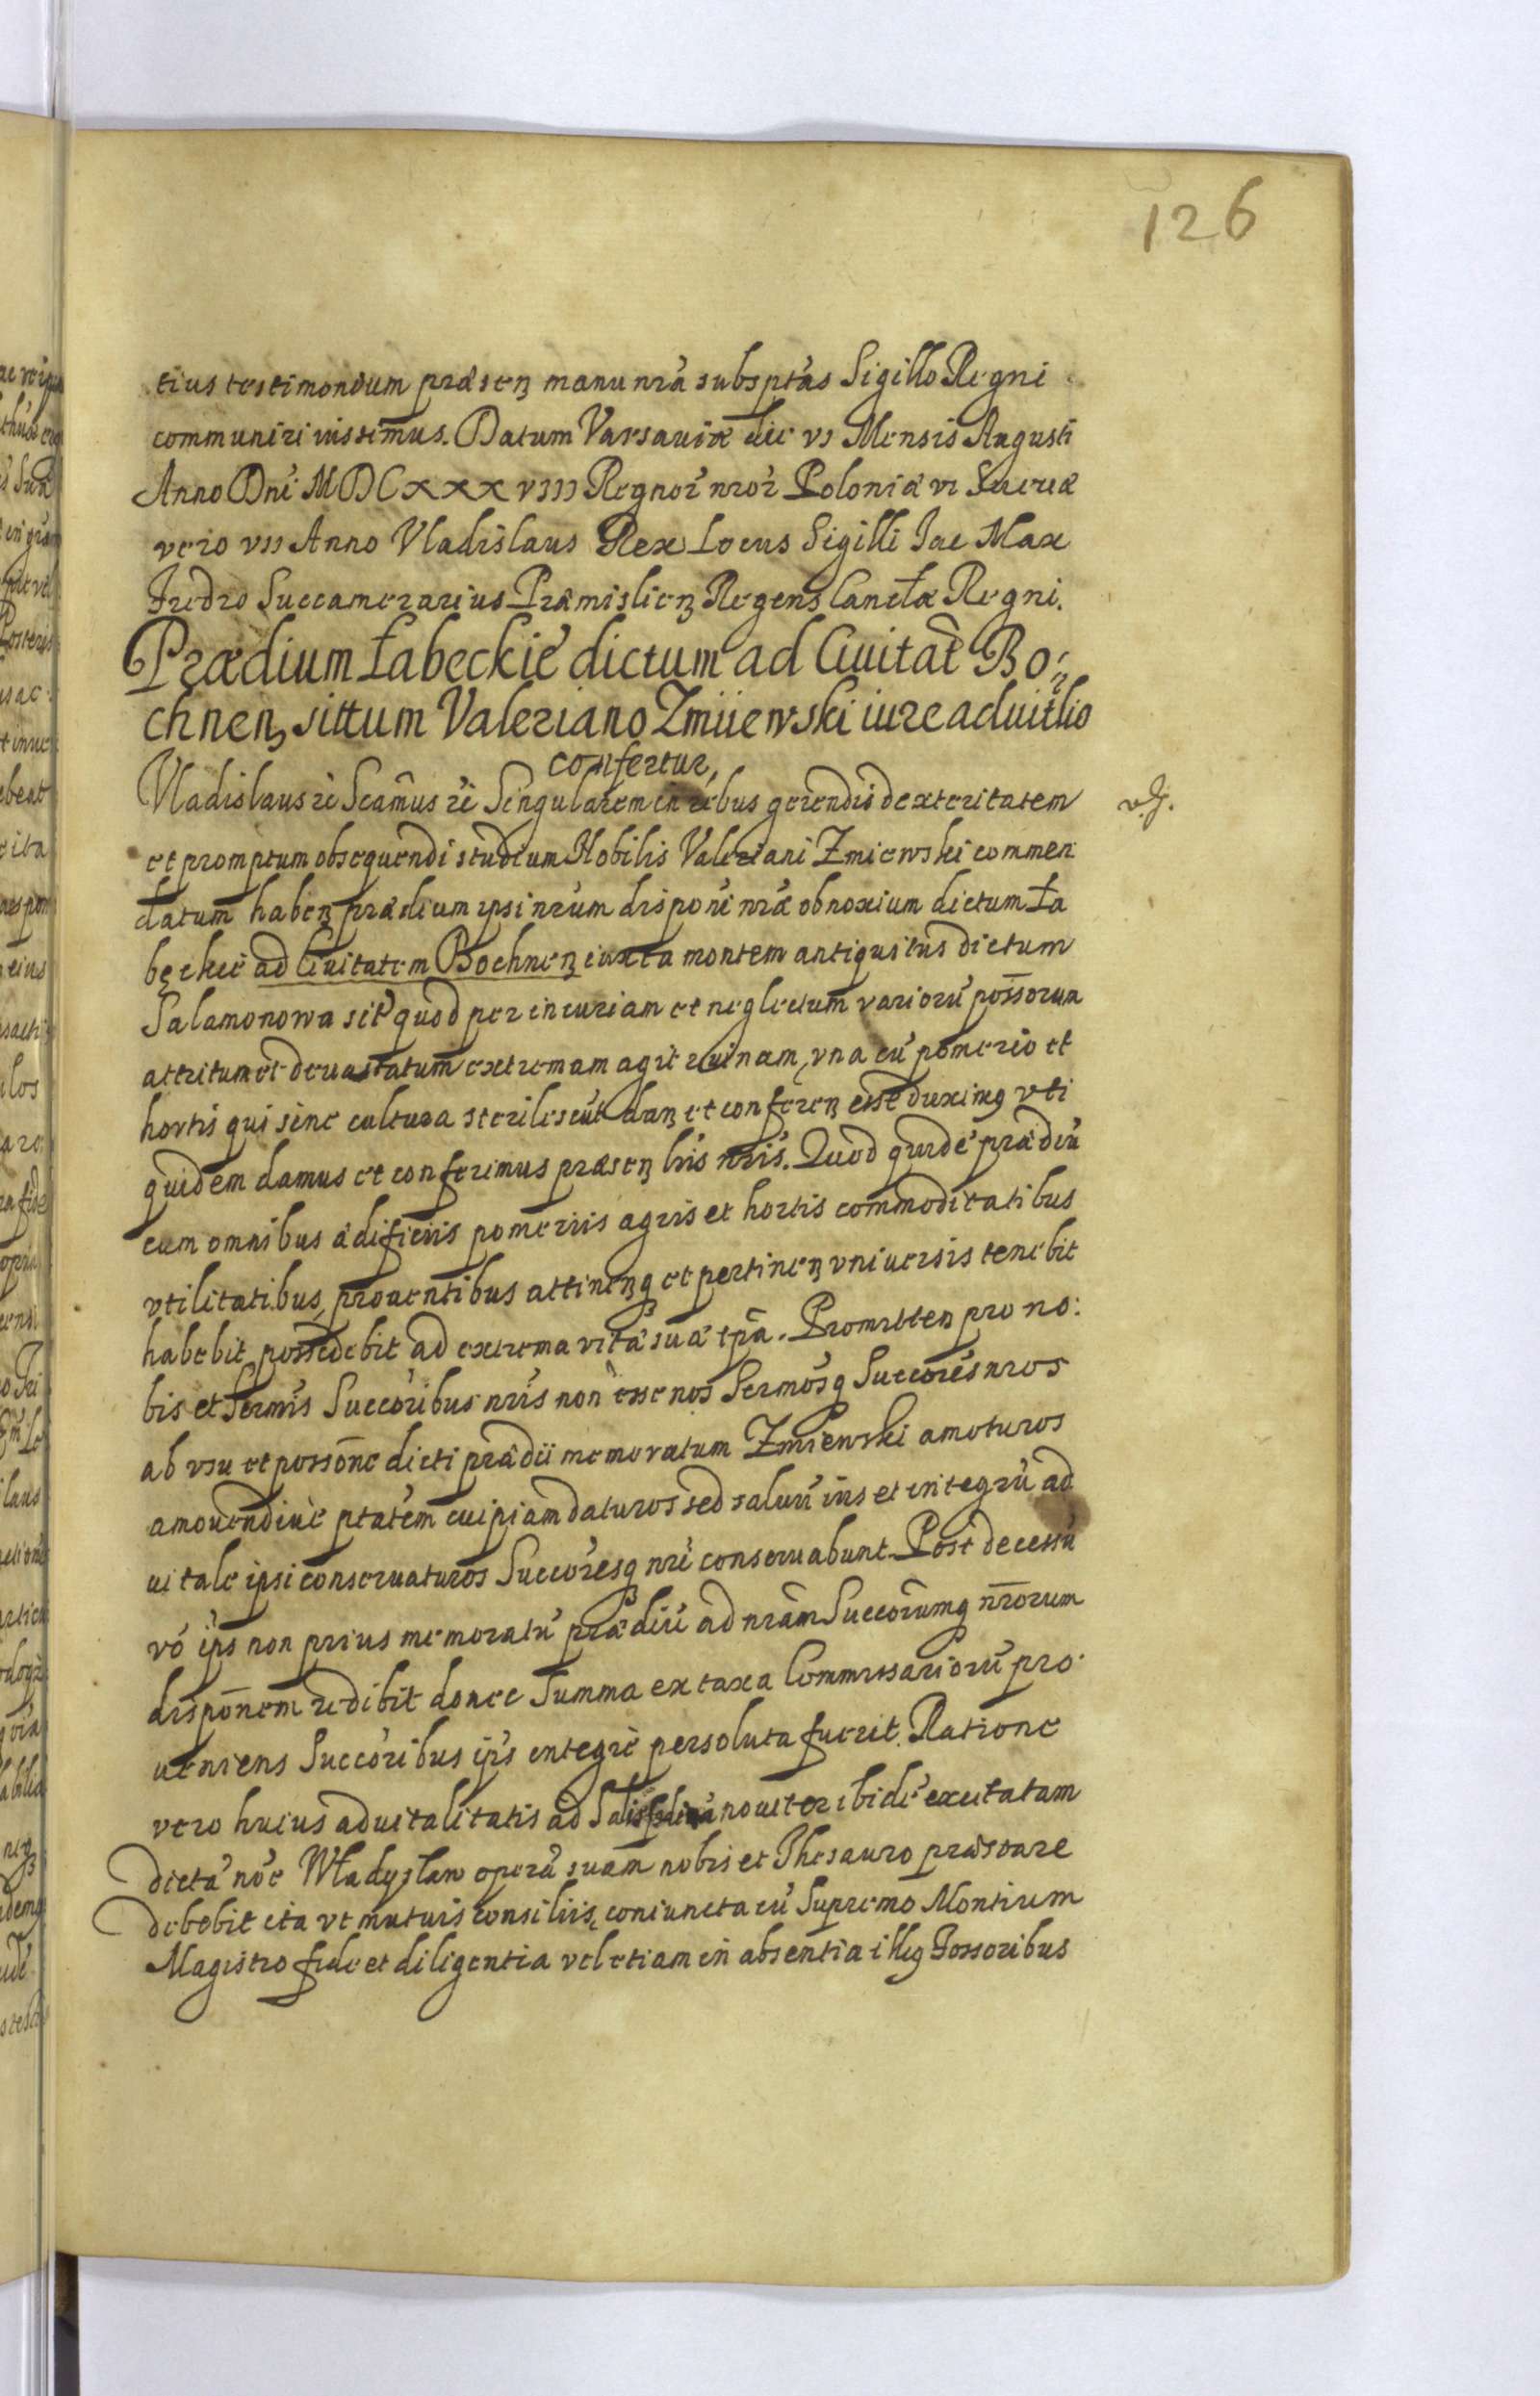 126
tius testimonium præsenʒ manu nrá subsptas Sigillo Regni
communiri iussimus. Datum Varsauiæ die VI Mensis Augusti
Anno Dni MDCXXXVIII Regnor nror Poloniæ VI Sueciæ
vero VII Anno Vladislaus Rex Locus Sigilli Iac Max
Fredro Succamerarius Præmislienʒ Regens Cancłæ Regni.
Prædium Łabeckie dictum ad Ciuitat Bo:
chnenʒ sittum Valeriano Zmiiewski iure aduitlio
confertur,
Vladislaus rc Scamus rc Singularem in rebus gerendis dexteritatem
v.J.
et promptum obsequendi studium Nobilis Valeriani Zmiewski commen
datum habenʒ prædium ipsi nrum disponi nræ obnoxium dictum Ła
bęckie ad Ciuitatem Bochnenʒ iuxta montem antiquitus dictum
Salamonowa sit quod per incuriam et neglectum varioru possorum
attritum et deuastatum extremam agit ruinam, vna cu pomerio et
hortis qui sine cultura sterilescut danʒ et conferenʒ esse duximq vti
quidem damus et conferimus præsenʒ lris nris. Quod quide prædiu
cum omnibus ædificiis pomeriis agris et hortis commoditatibus
vtilitatibus, prouentibus attinenʒq et pertinenʒ vniuersis tenebit
habebit possidebit ad extrema vitæ suæ tpa. Promittenʒ pro no:
bis et Sermis Succoribus nris non esse nos Sermosq Succores nros
ab vsu et possone dicti prædii memoratum Zmiewski amoturos
amouendiue ptatem cuipiam daturos sed saluu ius et integru ad
uitale ipsi conseruaturos Succoresq nri conseruabunt. Post decessu
vo ips non prius memoratu prædiu ad nram Succorumq nrorum
disponem redibit donec Summa ex taxa Commissarioru pro
ueniens Succoribus ips integre persoluta fuerit. Ratione
vero huius aduitalitatis ad nouiter ibide excitatam
dicta noe Władysław opera suam nobis et Thesauro præstare
debebit ita vt mutuis consiliis, coniuncta cu Supremo Montium
Magistro fide et diligentia vel etiam in absentia illiq Fossoribus